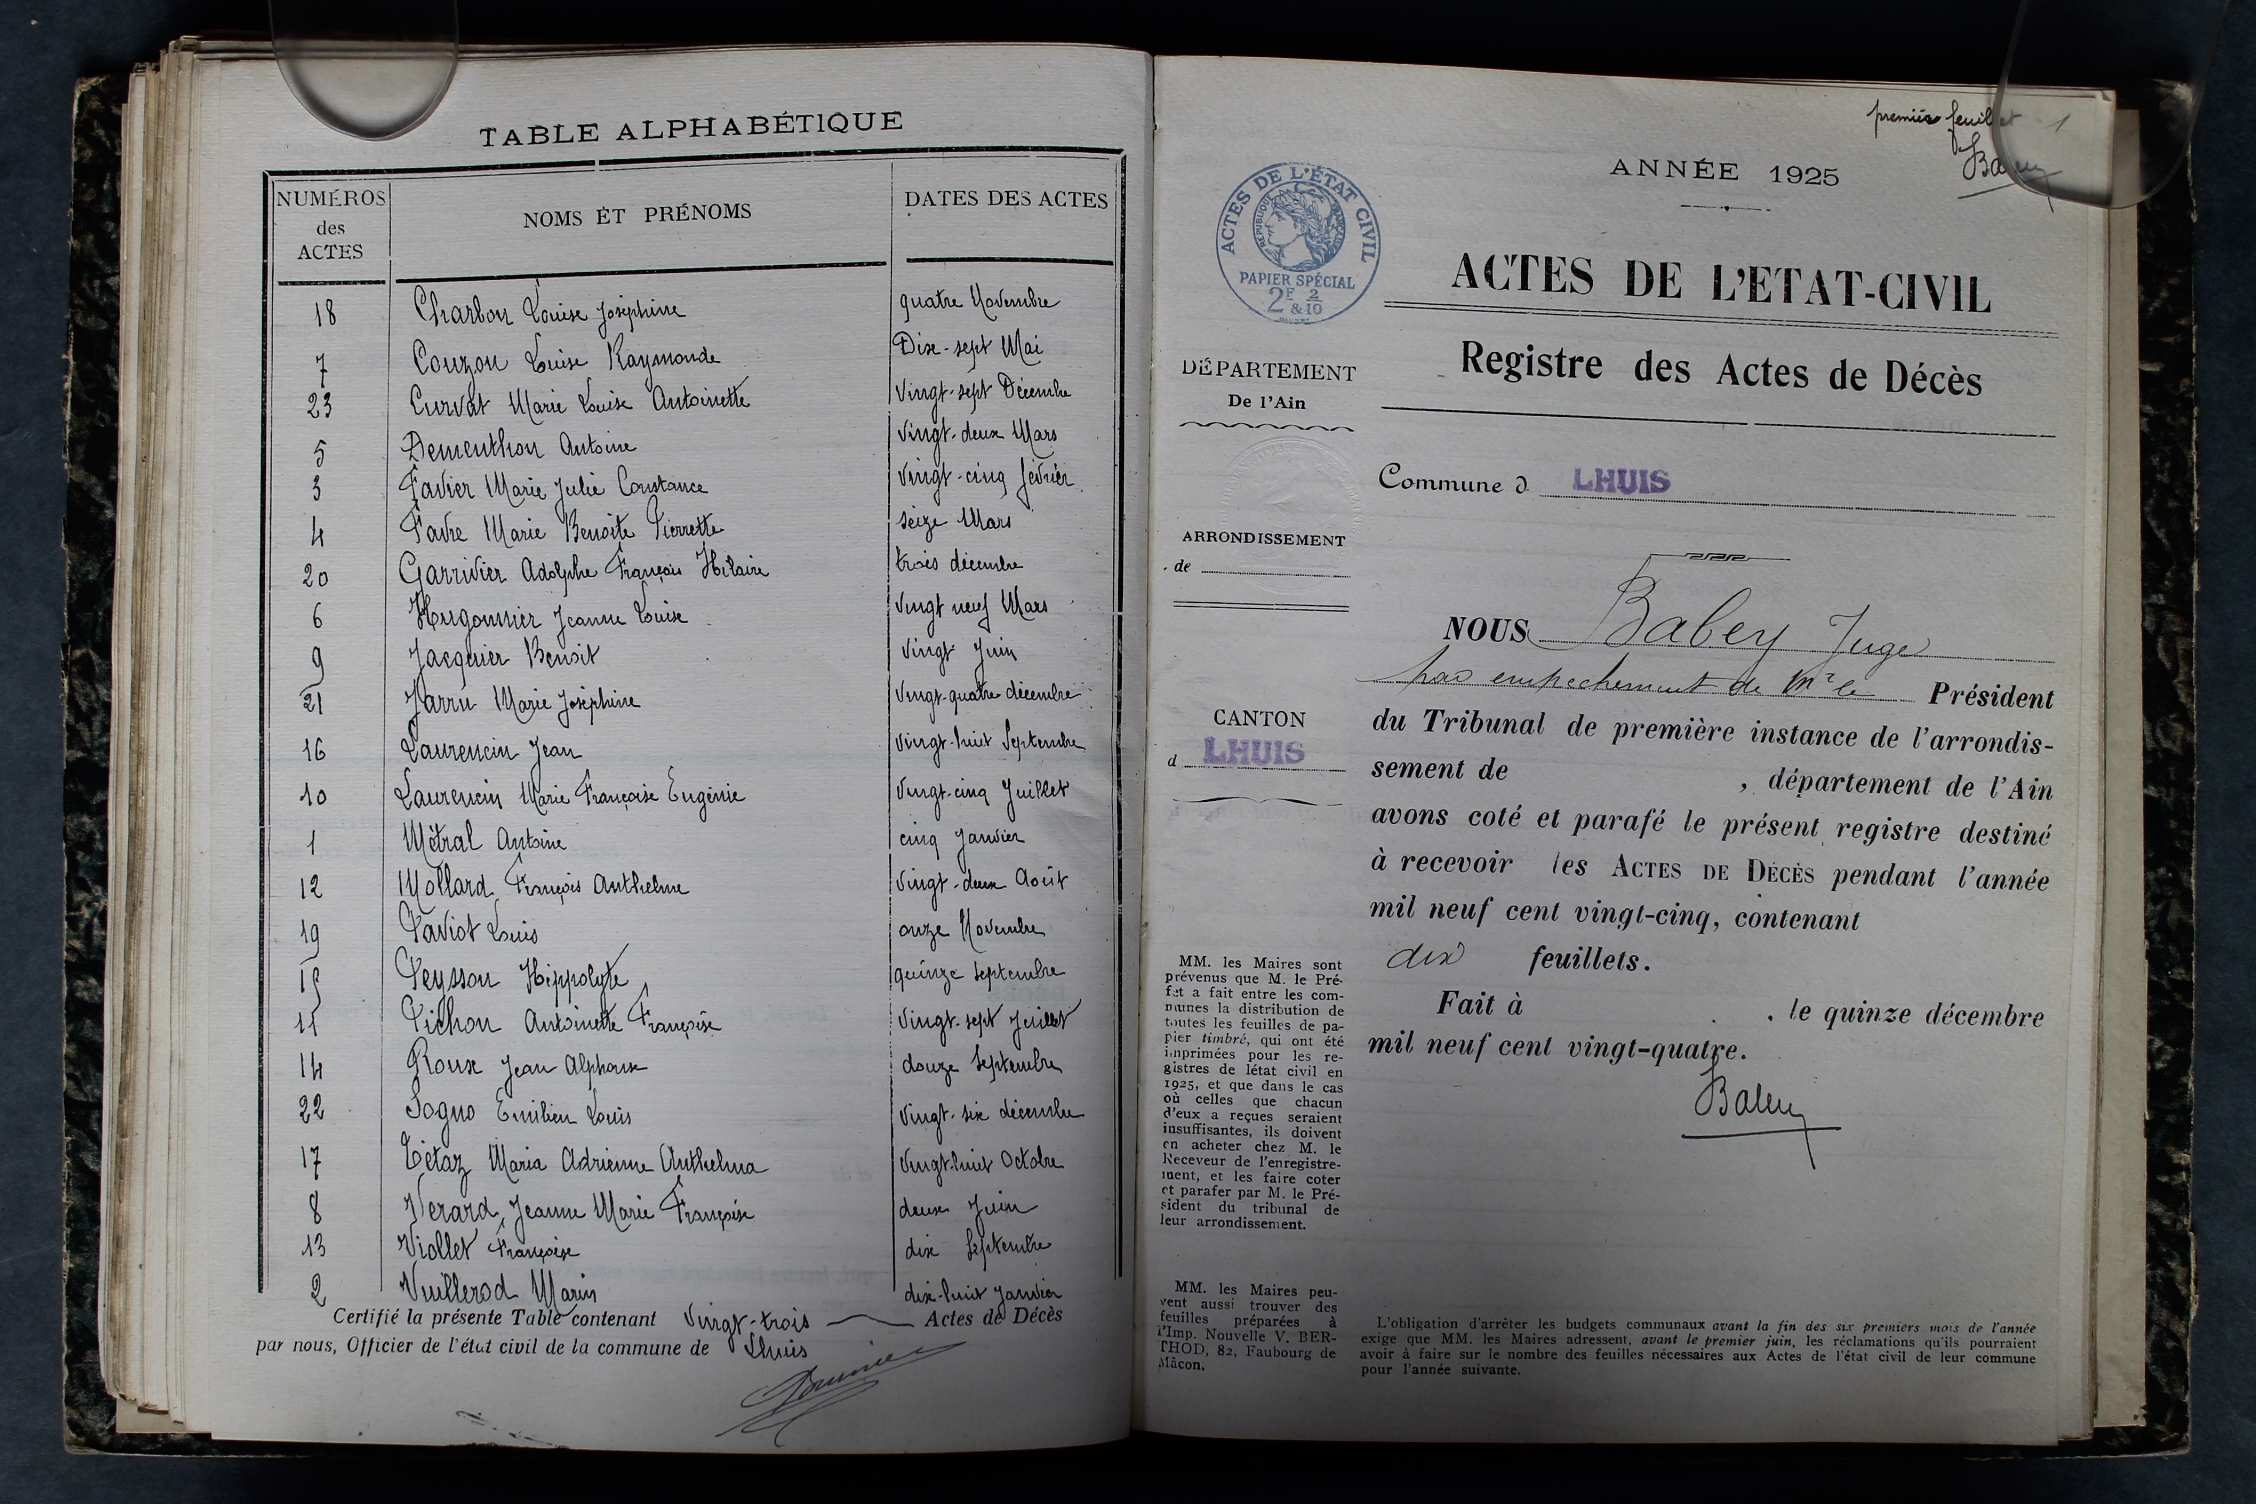 TABLE ALPHABÉTIQUE
NUMÉROS des ACTES NOMS ET PRÉNOMS DATES DES ACTES
18 Charbon Louise Joséphine quatre Novembre
7 Couzon Louise Raymonde Dix-sept Mai
23 Curvat Marie Louise Antoinette Vingt-sept Décembre
5 Dementhon Antoine Vingt-deux Mars
3 Favier Marie Julie Constance Vingt-cinq février
4 Favre Marie Benoîte Pierrette seize Mars
20 Garrivier Adolphe François Hilaire trois décembre
6 Hugonnier Jeanne Louise Vingt neuf Mars
9 Jacquier Benoit Vingt Juin
21 Jarru Marie Joséphine Vingt-quatre décembre
16 Laurencin Jean Vingt-huit Septembre
10 Laurencin Marie Françoise Eugénie Vingt-cinq Juillet
1 Métral Antoine cinq Janvier
12 Mollard François Anthelme Vingt-deux Août
19 Paviot Louis onze Novembre
15 Peysson Hippolyte quinze septembre
11 Pichon Antoinette Françoise Vingt-sept Juillet
14 Roux Jean Alphonse douze Septembre
22 Sogno Emilien Louis Vingt-six décembre
17 Tétaz Maria Adrienne Anthelma Vingt-huit Octobre
8 Verard Jeanne Marie Françoise deux Juin
13 Viollet Françoise dix Septembre
2 Vuillerod Marin dix-huit Janvier
Certifié la présente Table contenant Vingt-trois Actes de Décès
par nous, Officier de l'état civil de la commune de Lhuis
premier feuillet 1
Babey
ANNÉE 1925
ACTES DE L'ÉTAT CIVIL
RÉPUBLIQUE FRANÇAISE
PAPIER SPÉCIAL
2F & 2/10
ACTES DE L'ETAT-CIVIL
Registre des Actes de Décès
DÉPARTEMENT
De l'Ain
Commune d LHUIS
ARRONDISSEMENT
de
CANTON
d LHUIS
MM. les Maires sont
prévenus que M. le Pré-
fet a fait entre les com-
munes la distribution de
toutes les feuilles de pa-
pier timbré, qui ont été
imprimées pour les re-
gistres de létat civil en
1925, et que dans le cas
où celles que chacun
d'eux a reçues seraient
insuffisantes, ils doivent
en acheter chez M. le
Receveur de l'enregistre-
ment, et les faire coter
et parafer par M. le Pré-
sident du tribunal de
leur arrondissement.
MM. les Maires peu-
vent aussi trouver des
feuilles préparées à
l'Imp. Nouvelle V. BER-
THOD, 82, Faubourg de
Mâcon,
NOUS Babey Juge
par empechement de Mr le Président
du Tribunal de première instance de l'arrondis-
sement de , département de l'Ain
avons coté et parafé le présent registre destiné
à recevoir les ACTES DE DÉCÈS pendant l'année
mil neuf cent vingt-cinq, contenant
dix feuillets.
Fait à , le quinze décembre
mil neuf cent vingt-quatre.
Babey
L'obligation d'arrêter les budgets communaux avant la fin des six premiers mois de l'année
exige que MM. les Maires adressent, avant le premier juin, les réclamations qu'ils pourraient
avoir à faire sur le nombre des feuilles nécessaires aux Actes de l'état civil de leur commune
pour l'année suivante.